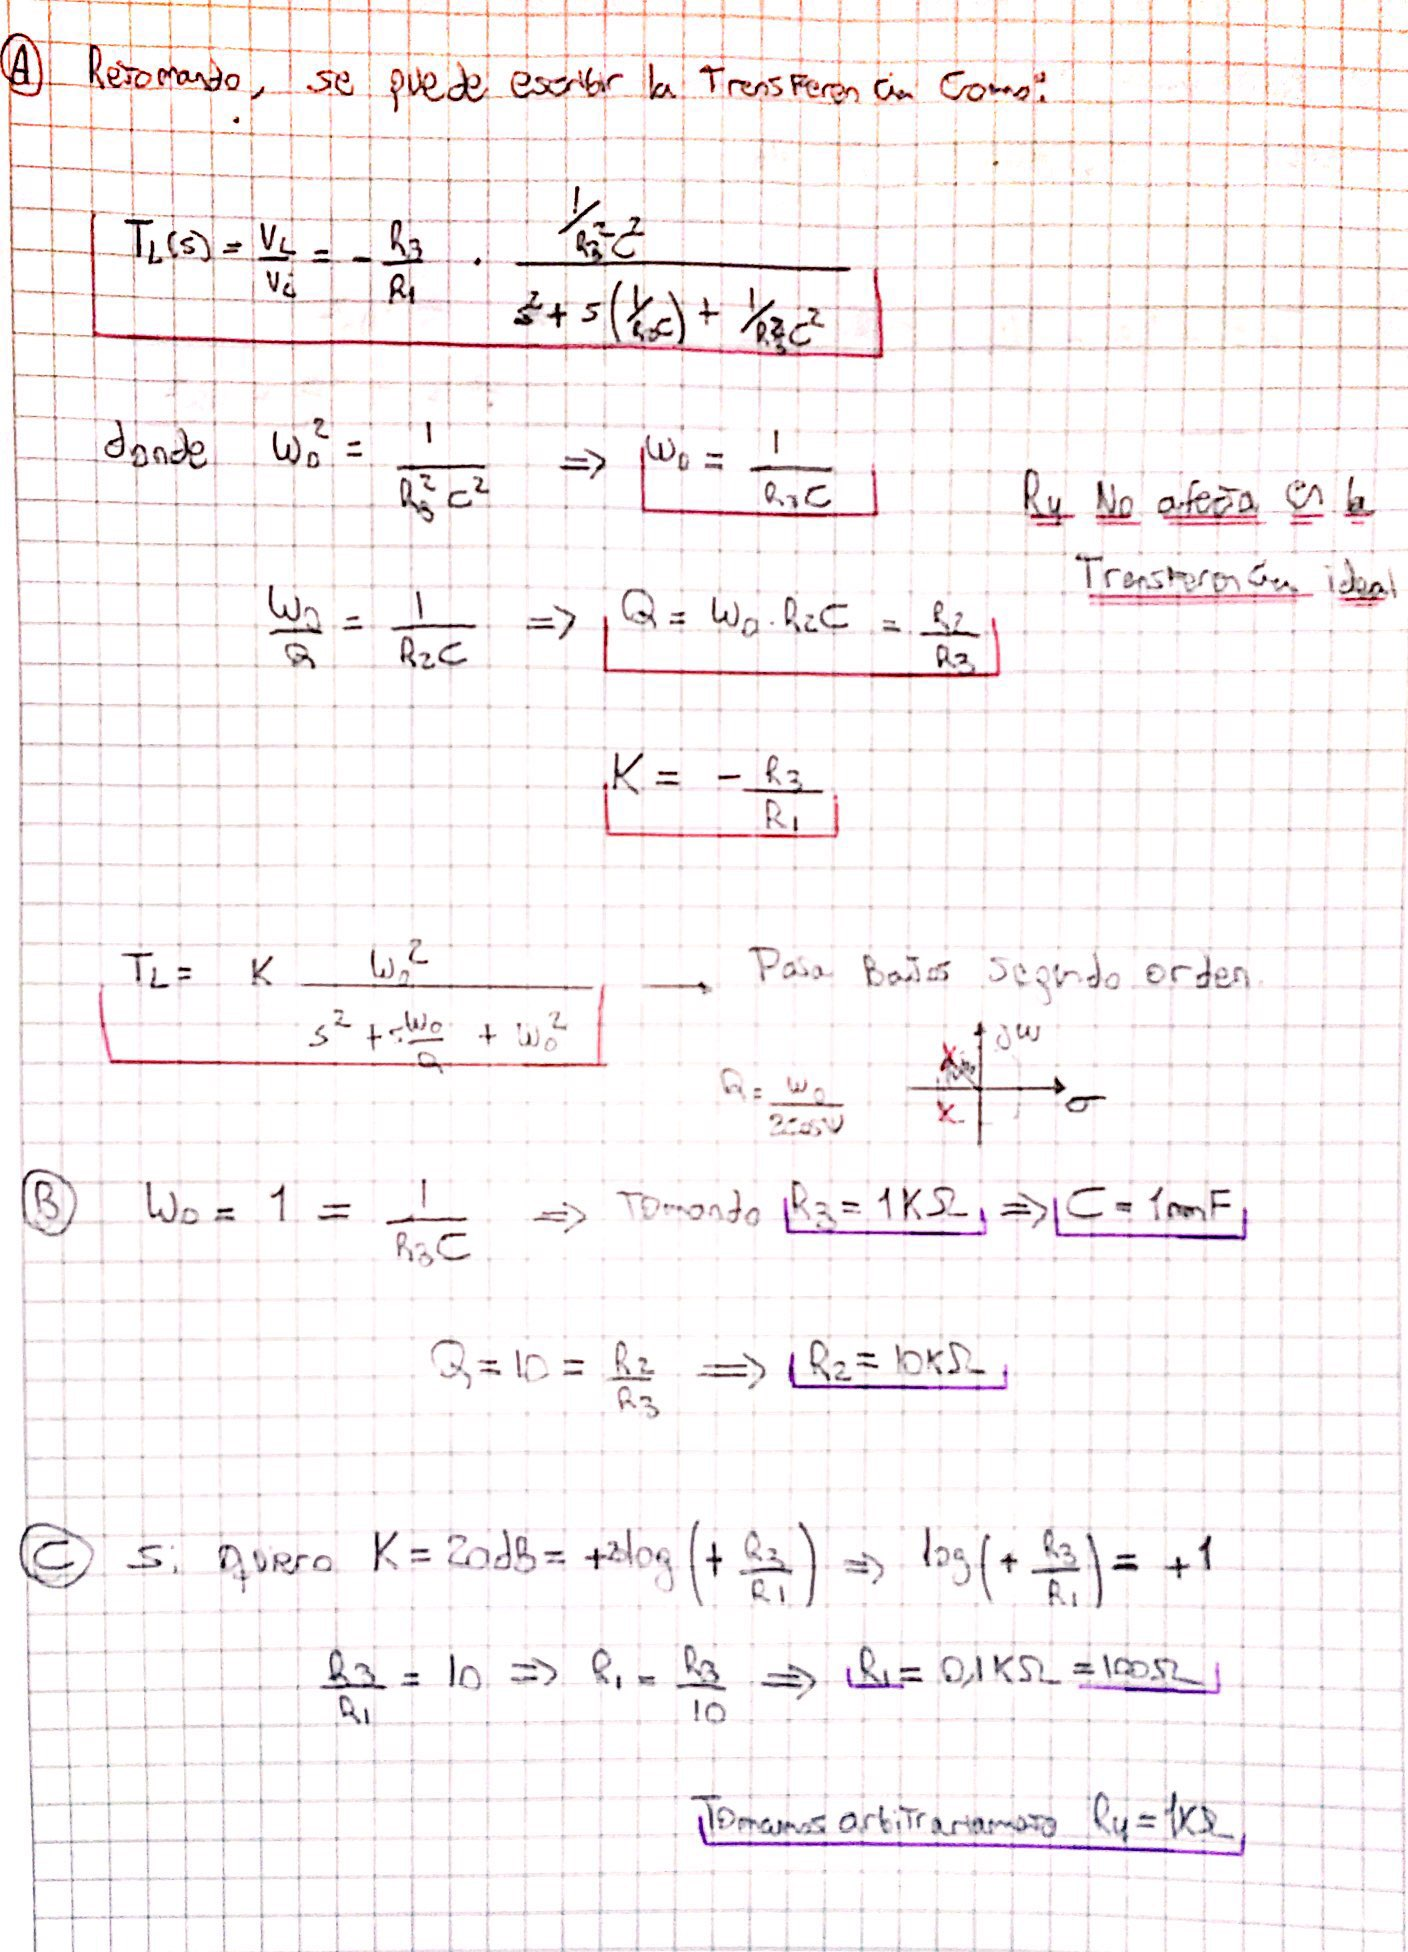 A Retomando, se puede escribir la Transferencia Como:
T_L(s) = V_L/V_i = - R_3/R_1 · (1/R_3²C²) / (s² + s(1/R_2C) + 1/R_3²C²)
donde ω_0² = 1/(R_3²C²) ⇒ ω_0 = 1/(R_3C)
R_4 No afecta en la
Transferencia ideal
ω_0/Q = 1/(R_2C) ⇒ Q = ω_0 · R_2C = R_2/R_3
K = - R_3/R_1
T_L = K ω_0² / (s² + s ω_0/Q + ω_0²) → Pasa Bajos segundo orden.
jω
σ
Q = ω_0/(2cosψ)
B ω_0 = 1 = 1/(R_3C) ⇒ Tomando R_3 = 1KΩ ⇒ C = 1mF
Q = 10 = R_2/R_3 ⇒ R_2 = 10KΩ
C Si quiero K = 20dB = +20log(+ R_3/R_1) ⇒ log(+ R_3/R_1) = +1
R_3/R_1 = 10 ⇒ R_1 = R_3/10 ⇒ R_1 = 0,1KΩ = 100Ω
Tomamos arbitrariamente R_4 = 1KΩ